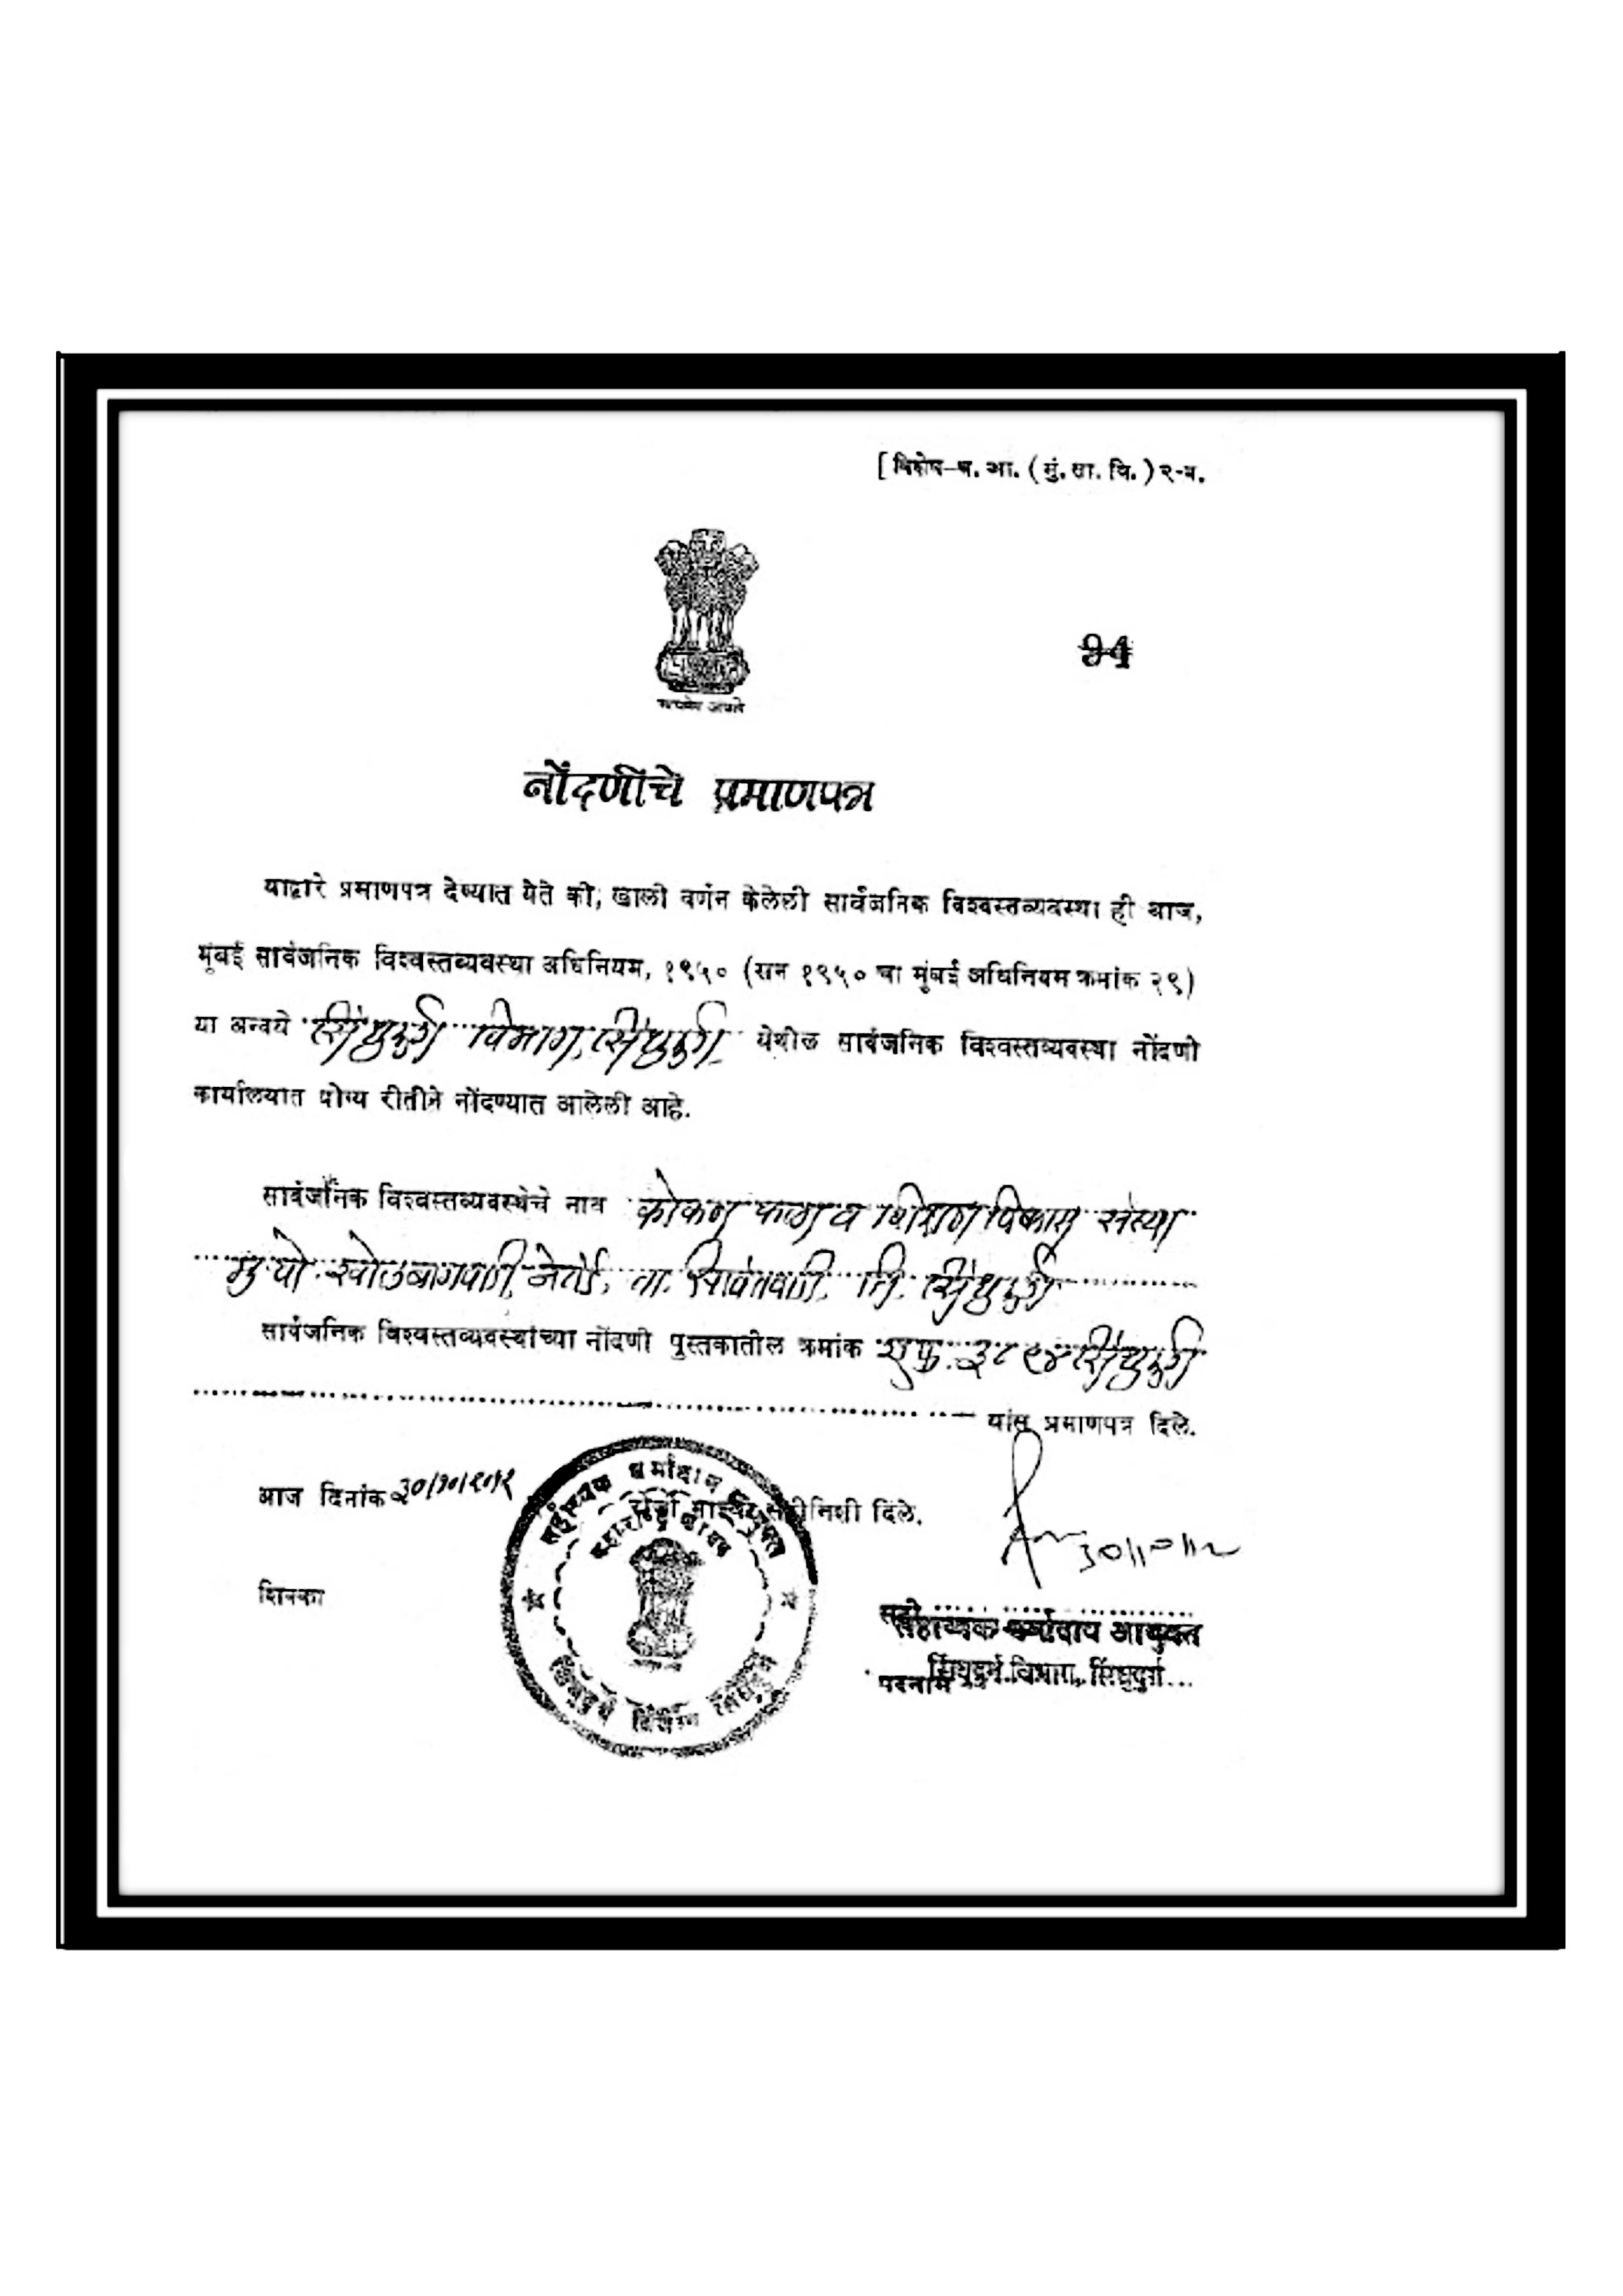 [ विशेष-ध. आ. ( मुं. सा. वि. ) २-ब.
94
सत्यमेव जयते
नोंदणीचे प्रमाणपत्र
याद्वारे प्रमाणपत्र देण्यात येते की, खाली वर्णन केलेली सार्वजनिक विश्वस्तव्यवस्था ही आज,
मुंबई सार्वजनिक विश्वस्तव्यवस्था अधिनियम, १९५० (सन १९५० चा मुंबई अधिनियम क्रमांक २९)
या अन्वये सिंधुदुर्ग विभाग, सिंधुदुर्ग येथील सार्वजनिक विश्वस्तव्यवस्था नोंदणी
कार्यालयात योग्य रीतीने नोंदण्यात आलेली आहे.
सार्वजनिक विश्वस्तव्यवस्थेचे नाव कोकण कला व शिक्षण विकास संस्था
मु.पो. ता. सावंतवाडी, जि. सिंधुदुर्ग
सार्वजनिक विश्वस्तव्यवस्थांच्या नोंदणी पुस्तकातील क्रमांक एफ. ३८९४ सिंधुदुर्ग
यांस प्रमाणपत्र दिले.
आज दिनांक ३०/१०/२०१२ रोजी माझ्या सहीनिशी दिले.
30/10/12
शिक्का
सही
सहाय्यक धर्मादाय आयुक्त
पदनाम सिंधुदुर्ग विभाग, सिंधुदुर्ग
सहाय्यक धर्मादाय आयुक्त
महाराष्ट्र शासन
सिंधुदुर्ग विभाग सिंधुदुर्ग